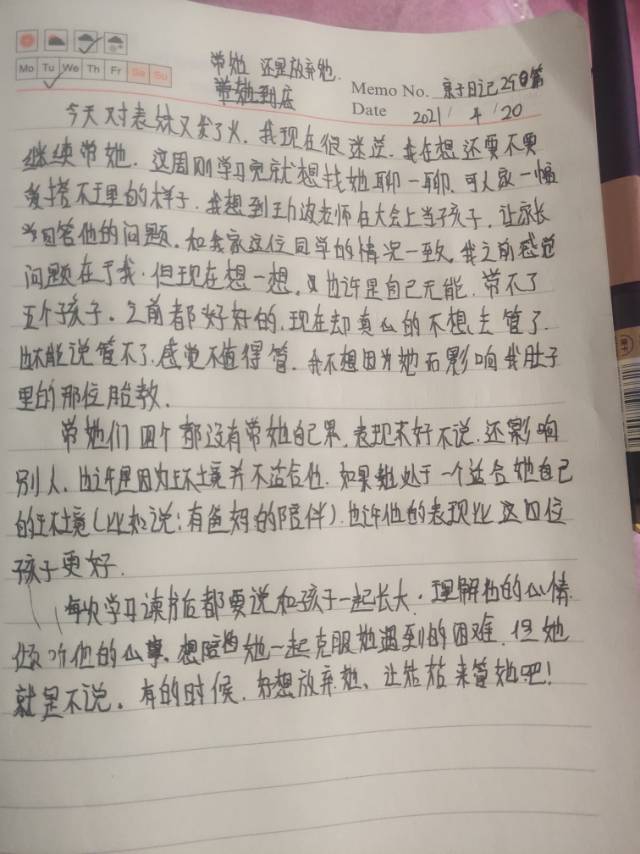 带她 还是放弃她.
带她到底
Memo No. 亲子日记25日篇
Date 2021/ 4 / 20
Mo Tu We Th Fr Sa Su
今天对表妹又发了火. 我现在很迷茫. 我在想还要不要
继续带她. 这周刚学习完就想找她聊一聊. 可人家一幅
爱搭不理的样子. 我想到王力波老师在大会上当子孩子. 让家长
当回答他的问题. 和我家这位同学的情况一致. 我之前感觉
问题在于我. 但现在想一想. 也许是自己无能. 带不了
五个孩子. 之前都好好的. 现在却真心的不想去管了.
也不能说管不了. 感觉不值得管. 我不想因为她而影响我肚子
里的那位胎教.
带她们四个都没有带她自己累. 表现来好不说. 还影响
别人. 也许是因为环境并不适合他. 如果她处于一个适合她自己
的环境(比如说:有爸妈的陪伴). 也许他的表现比这四位
孩子更好.
每次学习读书后都要说和孩子一起长大. 理解他的心情
倾听他的心事. 想陪她一起克服她遇到的困难. 但她
就是不说. 有的时候. 好想放弃她、让姑姑来管她吧!